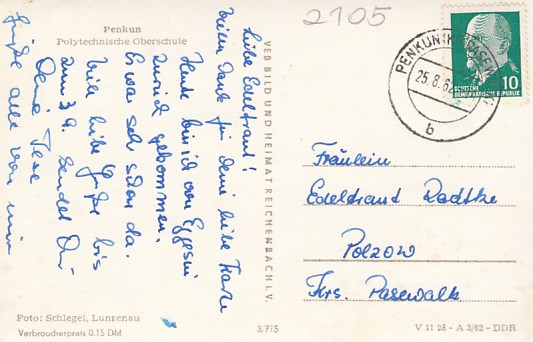 2105
Penkun
Polytechnische Oberschule
Liebe Edeltraut!
Vielen Dank für deine liebe Karte
Heute bin ich von Eggesin
zurück gekommen.
Es war sehr schön da.
Viele liebe Grüße bis
zum 3.9. sendet Dir
Deine
Grüße alle von mir
VEB BILD UND HEIMAT REICHENBACH I. V.
PENKUN
25.8.62
b
10
DEUTSCHE
DEMOKRATISCHE REPUBLIK
Fräulein
Edeltraud Radtke
Polzow
Krs. Pasewalk
Foto: Schlegel, Lunzenau
Verbraucherpreis 0.15 DM
3/775
V 11 28 - A 3/62 - DDR